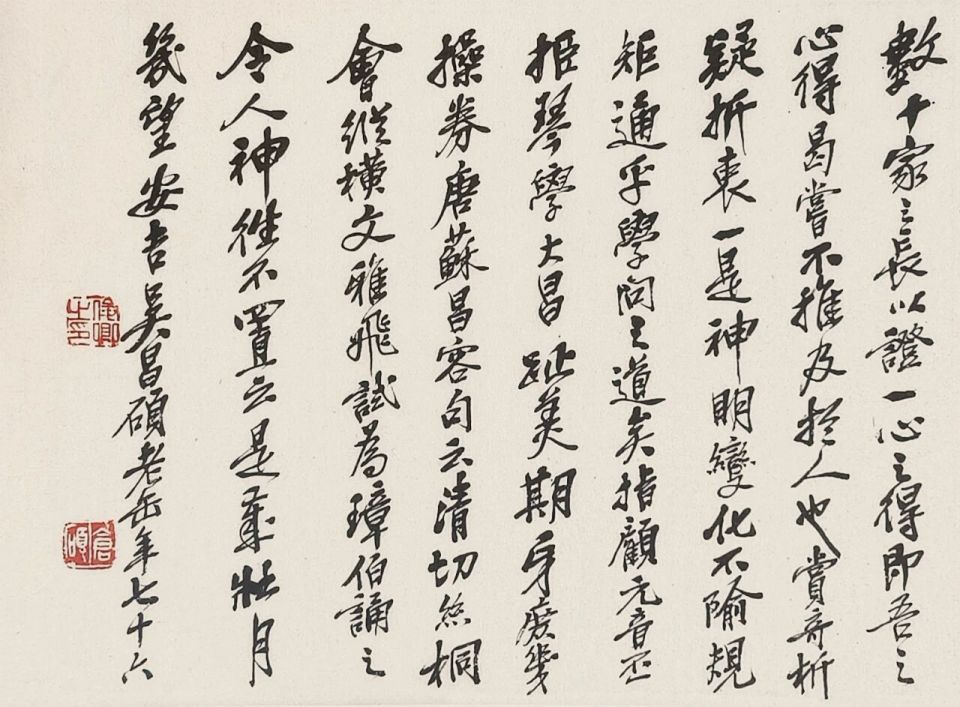 數十家之長以證一心之得即吾之
心得曷嘗不推及於人也賞奇析
疑折衷一是神明變化不隃規
矩通乎學問之道矣指顧元音丕
振琴學大昌趾美期牙庶幾
操券唐蘇昌容句云清切絲桐
會縱橫文雅飛試為璋伯誦之
令人神往不置云是歲壯月
幾望安吉吳昌碩老缶年七十六
俊卿之印
倉碩